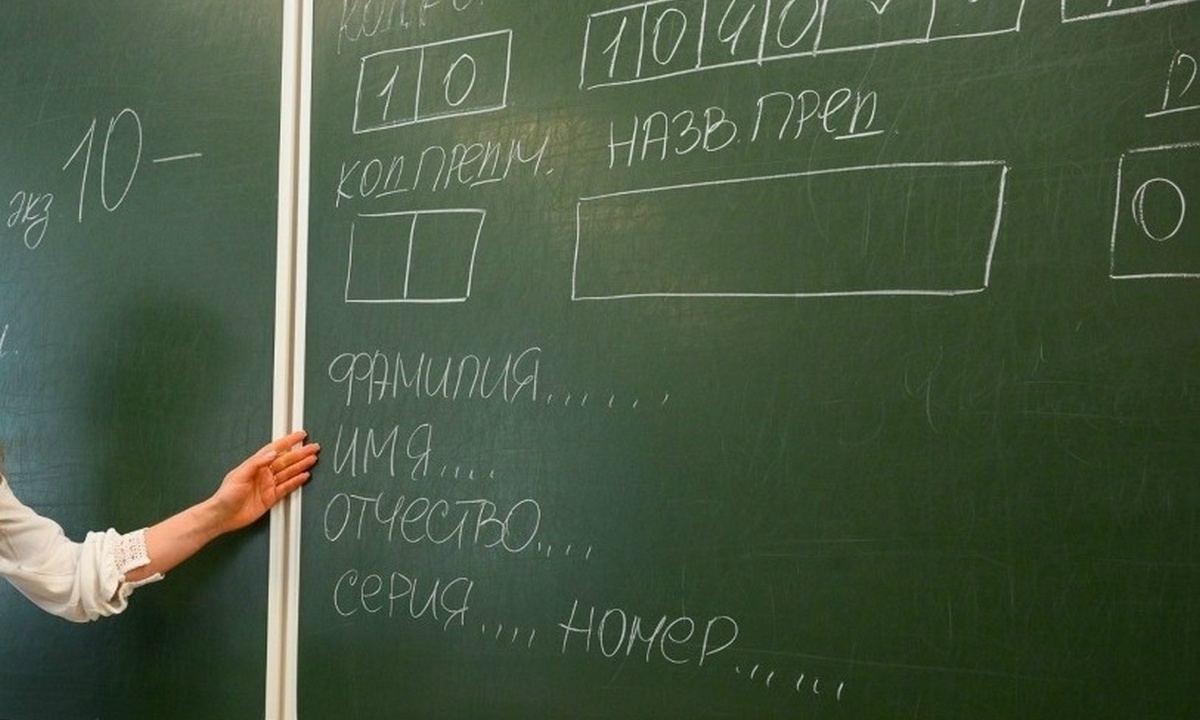 экз 10 —
1 0
1 0 4 0
КОД ПРЕДМ.
НАЗВ. ПРЕД
0
ФАМИЛИЯ......
ИМЯ....
ОТЧЕСТВО....
СЕРИЯ.... НОМЕР......